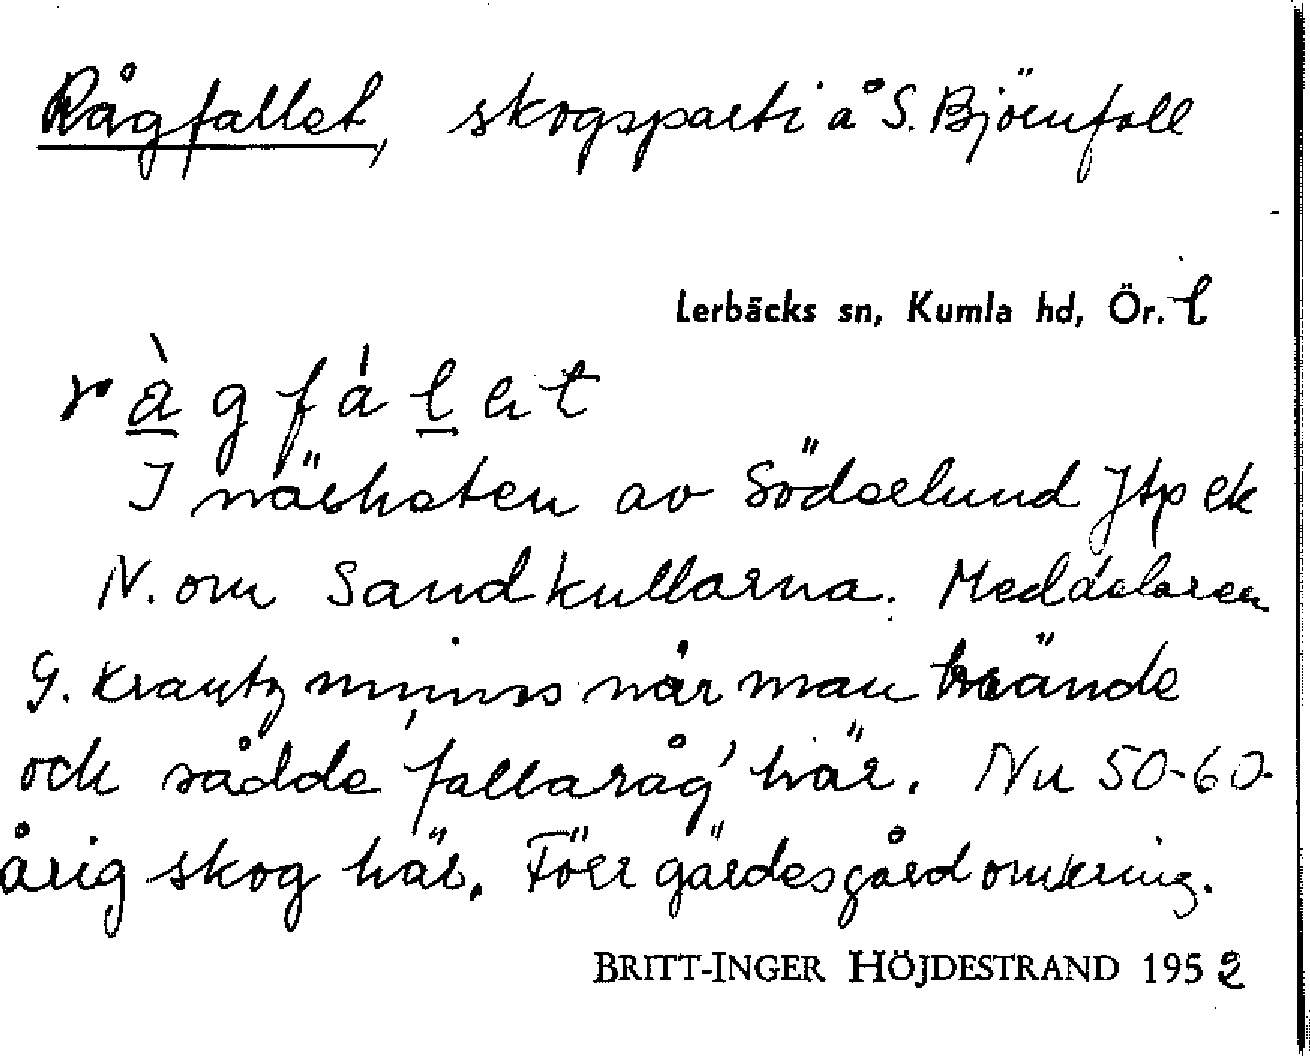 Rågfallet, skogsparti å S. Björnfall
Lerbäcks sn, Kumla hd, Ör. l
r à g f á l et
I närheten av Söderlund Jtp ek
N. om Sandkullarna. Meddelaren
G. Krantz minns när man brände
och sådde 'fallaråg' här. Nu 50-60-
årig skog här. Förr gärdesgård omkring.
BRITT-INGER HÖJDESTRAND 1952